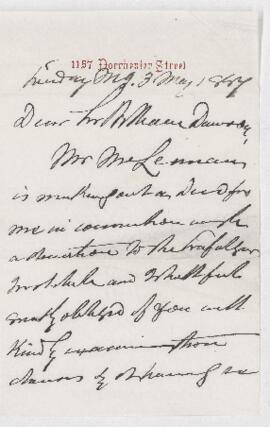 1157 Dorchester Street
Tuesday Mg. 3 May 1887
Dear Sir William Dawson,
Mr McLennan
is making out a Deed for
me in connection with
a donation to the Trafalgar
Institute and I shall feel
much obliged if you will
Kindly
clauses by